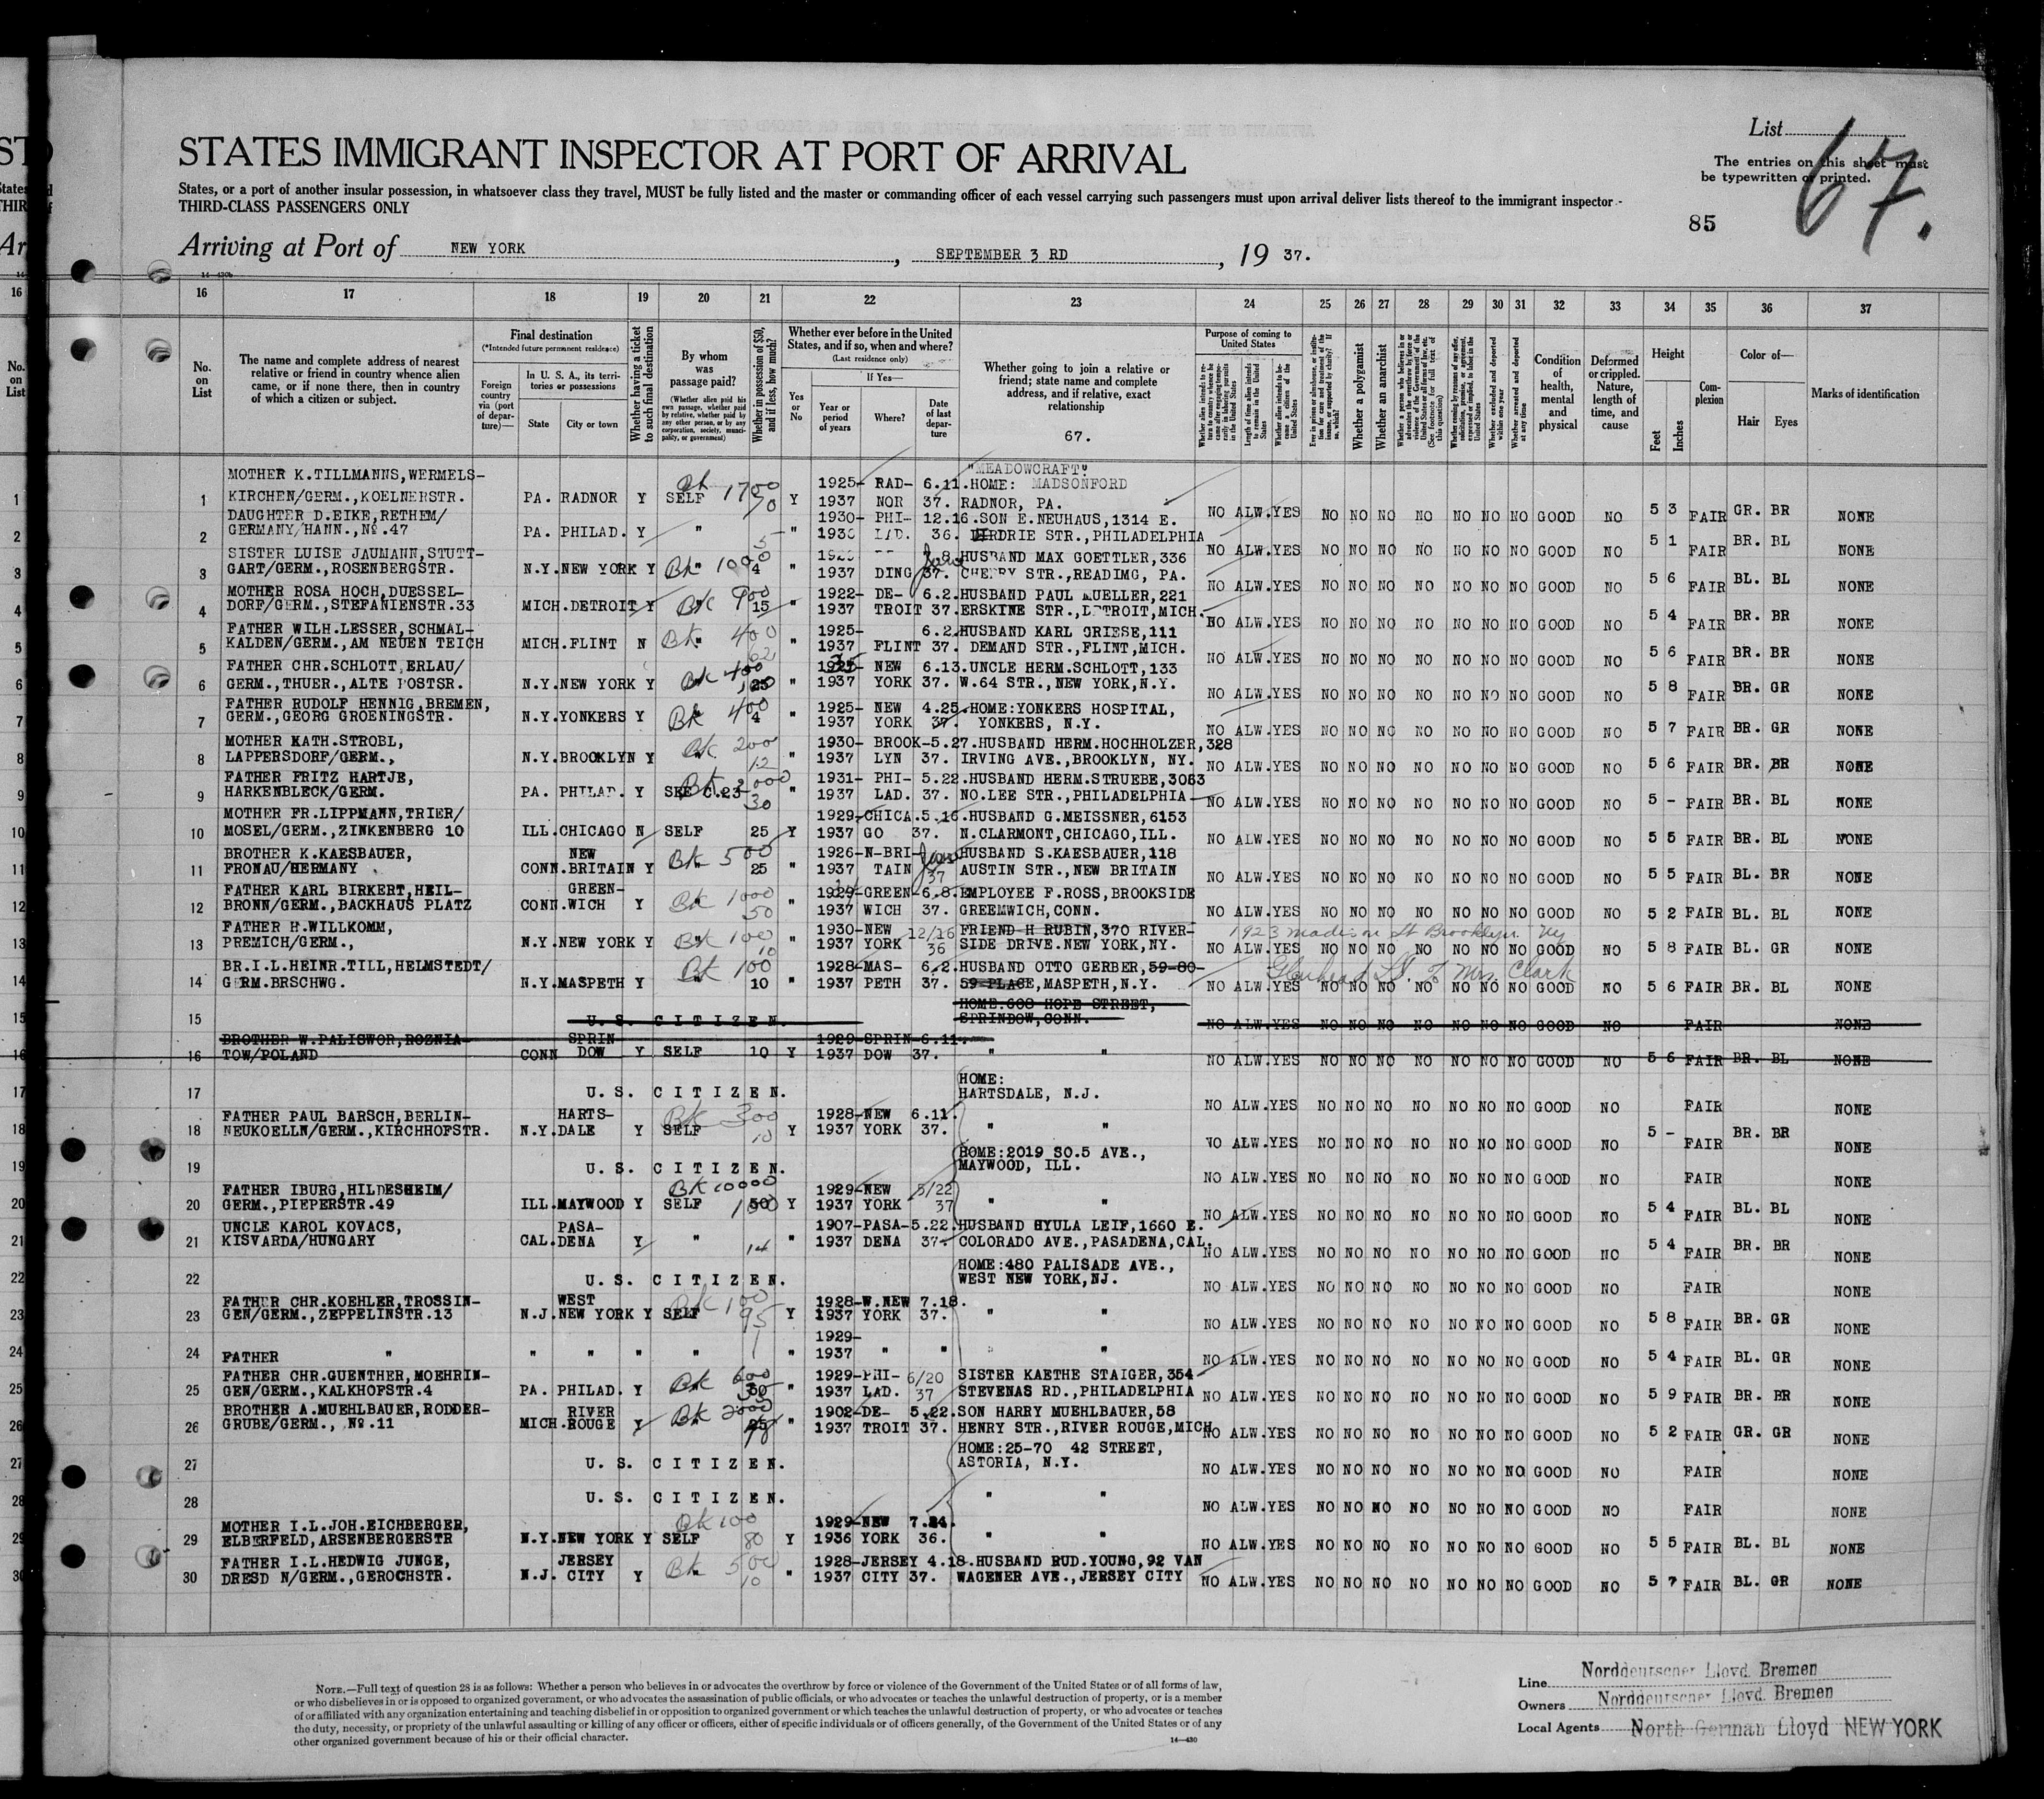 List
67.
The entries on this sheet must
be typewritten or printed.
STATES IMMIGRANT INSPECTOR AT PORT OF ARRIVAL
States, or a port of another insular possession, in whatsoever class they travel, MUST be fully listed and the master or commanding officer of each vessel carrying such passengers must upon arrival deliver lists thereof to the immigrant inspector
THIRD-CLASS PASSENGERS ONLY
85
Arriving at Port of NEW YORK, SEPTEMBER 3 RD, 19 37.
16 17 18 19 20 21 22 23 24 25 26 27 28 29 30 31 32 33 34 35 36 37
No. on List
The name and complete address of nearest relative or friend in country whence alien came, or if none there, then in country of which a citizen or subject.
Final destination
(*Intended future permanent residence)
Foreign country via (port of departure)—
In U. S. A., its territories or possessions
State
City or town
Whether having a ticket to such final destination
By whom was passage paid?
(Whether alien paid his own passage, whether paid by relative, whether paid by any other person, or by any corporation, society, municipality, or government)
Whether in possession of $50, and if less, how much?
Whether ever before in the United States, and if so, when and where?
(Last residence only)
Yes or No
If Yes—
Year or period of years
Where?
Date of last departure
Whether going to join a relative or friend; state name and complete address, and if relative, exact relationship
67.
Purpose of coming to United States
Whether a polygamist
Whether an anarchist
Condition of health, mental and physical
Deformed or crippled. Nature, length of time, and cause
Height
Feet
Inches
Complexion
Color of—
Hair
Eyes
Marks of identification
MOTHER K.TILLMANNS,WERMELS- 1925- RAD- 6.11.HOME: "MEADOWCRAFT" MADSONFORD
1 KIRCHEN/GERM.,KOELNERSTR. PA. RADNOR Y SELF 1700 Y 1937 NOR 37. RADNOR, PA. NO ALW.YES NO NO NO NO NO NO NO GOOD NO 5 3 FAIR GR. BR NONE
DAUGHTER D.EIKE,RETHEM/ 1930- PHI- 12.16.SON E.NEUHAUS,1314 E.
2 GERMANY/HANN.,No.47 PA. PHILAD. Y " 5 " LAD. 36. DIRDRIE STR.,PHILADELPHIA NO ALW.YES NO NO NO NO NO NO NO GOOD NO 5 1 FAIR BR. BL NONE
SISTER LUISE JAUMANN,STUTT- HUSBAND MAX GOETTLER,336
3 GART/GERM.,ROSENBERGSTR. N.Y.NEW YORK Y Bk 1000 4 " 1937 DING 37. CHERRY STR.,READIMG, PA. NO ALW.YES NO NO NO NO NO NO NO GOOD NO 5 6 FAIR BL. BL NONE
MOTHER ROSA HOCH,DUESSEL- 1922- DE- 6.2.HUSBAND PAUL MUELLER,221
4 DORF/GERM.,STEFANIENSTR.33 MICH.DETROIT Y Bk 900 15 " 1937 TROIT 37. ERSKINE STR.,DETROIT,MICH. NO ALW.YES NO NO NO NO NO NO NO GOOD NO 5 4 FAIR BR. BR NONE
FATHER WILH.LESSER,SCHMAL- 1925- 6.2.HUSBAND KARL GRIESE,111
5 KALDEN/GERM.,AM NEUEN TEICH MICH.FLINT N Bk 400 " 1937 FLINT 37. DEMAND STR.,FLINT,MICH. NO ALW.YES NO NO NO NO NO NO NO GOOD NO 5 6 FAIR BR. BR NONE
FATHER CHR.SCHLOTT,ERLAU/ 1925- NEW 6.13.UNCLE HERM.SCHLOTT,133
6 GERM.,THUER.,ALTE POSTSR. N.Y.NEW YORK Y Bk 400 " 1937 YORK 37. W.64 STR.,NEW YORK,N.Y. NO ALW.YES NO NO NO NO NO NO NO GOOD NO 5 8 FAIR BR. GR NONE
FATHER RUDOLF HENNIG,BREMEN, 1925- NEW 4.25.HOME:YONKERS HOSPITAL,
7 GERM.,GEORG GROENINGSTR. N.Y.YONKERS Y Bk 400 4 " 1937 YORK 37. YONKERS, N.Y. NO ALW.YES NO NO NO NO NO NO NO GOOD NO 5 7 FAIR BR. GR NONE
MOTHER KATH.STROBL, Bk 200 1930- BROOK-5.27.HUSBAND HERM.HOCHHOLZER,328
8 LAPPERSDORF/GERM., N.Y.BROOKLYN Y 12 " 1937 LYN 37. IRVING AVE.,BROOKLYN, NY. NO ALW.YES NO NO NO NO NO NO NO GOOD NO 5 6 FAIR BR. BR NONE
FATHER FRITZ HARTJE, 1931- PHI- 5.22.HUSBAND HERM.STRUEBE,3063
9 HARKENBLECK/GERM. PA. PHILAD. Y SEE C.23 30 " 1937 LAD. 37. NO.LEE STR.,PHILADELPHIA NO ALW.YES NO NO NO NO NO NO NO GOOD NO 5 - FAIR BR. BL NONE
MOTHER FR.LIPPMANN,TRIER/ 1929-CHICA.5.16.HUSBAND G.MEISSNER,6153
10 MOSEL/GERM.,ZINKENBERG 10 ILL.CHICAGO N SELF 25 Y 1937 GO 37. N.CLARMONT,CHICAGO,ILL. NO ALW.YES NO NO NO NO NO NO NO GOOD NO 5 5 FAIR BR. BL NONE
BROTHER K.KAESBAUER, NEW Bk 500 1926-N-BRI- HUSBAND S.KAESBAUER,118
11 FRONAU/HERMANY CONN.BRITAIN Y 25 " 1937 TAIN 37 AUSTIN STR.,NEW BRITAIN NO ALW.YES NO NO NO NO NO NO NO GOOD NO 5 5 FAIR BL. BR NONE
FATHER KARL BIRKERT,HEIL- GREEN- Bk 1000 1929-GREEN-6.8.EMPLOYEE F.ROSS,BROOKSIDE
12 BRONN/GERM.,BACKHAUS PLATZ CONN.WICH Y 50 " 1937 WICH 37. GREEMWICH,CONN. NO ALW.YES NO NO NO NO NO NO NO GOOD NO 5 2 FAIR BL. BL NONE
FATHER H.WILLKOMM, 1930-NEW 12/16 FRIEND H RUBIN,370 RIVER- 1923 Madison St Brooklyn Ny
13 PREMICH/GERM., N.Y.NEW YORK Y Bk 100 10 " 1937 YORK 36 SIDE DRIVE.NEW YORK,NY. NO ALW.YES NO NO NO NO NO NO NO GOOD NO 5 8 FAIR BL. GR NONE
BR.I.L.HEINR.TILL,HELMSTEDT/ Bk 100 1928-MAS- 6.2.HUSBAND OTTO GERBER,59-80- Glenhead L.I. Mrs. Clark
14 GERM.BRSCHWG. N.Y.MASPETH Y 10 " 1937 PETH 37. 59 PLACE,MASPETH,N.Y. NO ALW.YES NO NO NO NO NO NO NO GOOD NO 5 6 FAIR BR. BL NONE
HOME:608 HOPE STREET,
15 U. S. CITIZEN. SPRINDOW,CONN. NO ALW.YES NO NO NO NO NO NO NO GOOD NO FAIR NONE
BROTHER W.PALISWOR,ROZNIA- SPRIN- 1929-SPRIN-6.11.
16 TOW/POLAND CONN DOW Y SELF 10 Y 1937 DOW 37. " " NO ALW.YES NO NO NO NO NO NO NO GOOD NO 5 6 FAIR BR. BL NONE
HOME:
17 U. S. CITIZEN. HARTSDALE, N.J. NO ALW.YES NO NO NO NO NO NO NO GOOD NO FAIR NONE
FATHER PAUL BARSCH,BERLIN- HARTS- Bk 300 1928-NEW 6.11.
18 NEUKOELLN/GERM.,KIRCHHOFSTR. N.Y.DALE Y SELF 10 Y 1937 YORK 37. " " NO ALW.YES NO NO NO NO NO NO NO GOOD NO 5 - FAIR BR. BR NONE
HOME:2019 SO.5 AVE.,
19 U. S. CITIZEN. MAYWOOD, ILL. NO ALW.YES NO NO NO NO NO NO NO GOOD NO FAIR NONE
FATHER IBURG,HILDESHEIM/ Bk 10000 1929-NEW 5/22
20 GERM.,PIEPERSTR.49 ILL.MAYWOOD Y SELF Y 1937 YORK 37 " " NO ALW.YES NO NO NO NO NO NO NO GOOD NO 5 4 FAIR BL. BL NONE
UNCLE KAROL KOVACS, PASA- 1907-PASA-5.22.HUSBAND HYULA LEIF,1660 E.
21 KISVARDA/HUNGARY CAL.DENA Y " 14 " 1937 DENA 37. COLORADO AVE.,PASADENA,CAL. NO ALW.YES NO NO NO NO NO NO NO GOOD NO 5 4 FAIR BR. BR NONE
HOME:480 PALISADE AVE.,
22 U. S. CITIZEN. WEST NEW YORK,NJ. NO ALW.YES NO NO NO NO NO NO NO GOOD NO FAIR NONE
FATHER CHR.KOEHLER,TROSSIN- WEST Bk 100 1928-W.NEW 7.18.
23 GEN/GERM.,ZEPPELINSTR.13 N.J.NEW YORK Y SELF 95 Y 1937 YORK 37. " " NO ALW.YES NO NO NO NO NO NO NO GOOD NO 5 8 FAIR BR. GR NONE
1929-
24 FATHER " " " " " " 1937 " " " " NO ALW.YES NO NO NO NO NO NO NO GOOD NO 5 4 FAIR BL. GR NONE
FATHER CHR.GUENTHER,MOEHRIN- Bk 600 1929-PHI- 6/20 SISTER KAETHE STAIGER,354
25 GEN/GERM.,KALKHOFSTR.4 PA. PHILAD. Y 30 " 1937 LAD. 37 STEVENAS RD.,PHILADELPHIA NO ALW.YES NO NO NO NO NO NO NO GOOD NO 5 9 FAIR BR. BR NONE
BROTHER A.MUEHLBAUER,RODDER- RIVER Bk 2000 1902-DE- 5.22.SON HARRY MUEHLBAUER,58
26 GRUBE/GERM., No.11 MICH.ROUGE Y " 1937 TROIT 37. HENRY STR.,RIVER ROUGE,MICH NO ALW.YES NO NO NO NO NO NO NO GOOD NO 5 2 FAIR GR. GR NONE
HOME:25-70 42 STREET,
27 U. S. CITIZEN. ASTORIA, N.Y. NO ALW.YES NO NO NO NO NO NO NO GOOD NO FAIR NONE
28 U. S. CITIZEN. " " NO ALW.YES NO NO NO NO NO NO NO GOOD NO FAIR NONE
MOTHER I.L.JOH.EICHBERGER, Bk 100 1929-NEW 7.24.
29 ELBERFELD,ARSENBERGERSTR N.Y.NEW YORK Y SELF 80 Y 1936 YORK 36. " " NO ALW.YES NO NO NO NO NO NO NO GOOD NO 5 5 FAIR BL. BL NONE
FATHER I.L.HEDWIG JUNGE, JERSEY Bk 500 1928-JERSEY 4.18.HUSBAND RUD.YOUNG,92 VAN
30 DRESD N/GERM.,GEROCHSTR. N.J. CITY Y 10 " 1937 CITY 37. WAGENER AVE.,JERSEY CITY NO ALW.YES NO NO NO NO NO NO NO GOOD NO 5 7 FAIR BL. GR NONE
NOTE.—Full text of question 28 is as follows: Whether a person who believes in or advocates the overthrow by force or violence of the Government of the United States or of all forms of law,
or who disbelieves in or is opposed to organized government, or who advocates the assassination of public officials, or who advocates or teaches the unlawful destruction of property, or is a member
of or affiliated with any organization entertaining and teaching disbelief in or opposition to organized government or which teaches the unlawful destruction of property, or who advocates or teaches
the duty, necessity, or propriety of the unlawful assaulting or killing of any officer or officers, either of specific individuals or of officers generally, of the Government of the United States or of any
other organized government because of his or their official character.
14—430
Line Norddeutscher Lloyd Bremen
Owners Norddeutscher Lloyd Bremen
Local Agents North German Lloyd NEW YORK